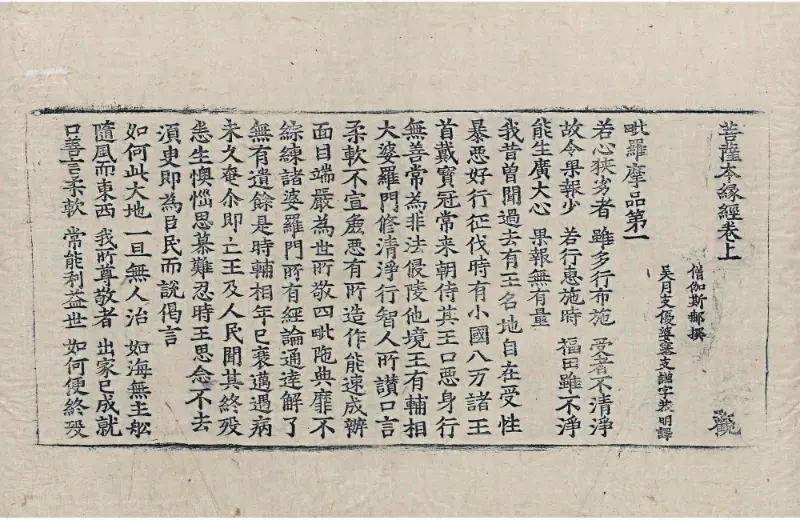 菩薩本緣經卷上 觀
僧伽斯那撰
吳月支優婆塞支謙字恭明譯
毗羅摩品第一
若心狹劣者 雖多行布施 受者不清淨
故令果報少 若行惠施時 福田雖不淨
能生廣大心 果報無有量
我昔曾聞過去有王名地自在受性
暴惡好行征伐時有小國八万諸王
首戴寶冠常来朝侍其王口惡身行
無善常為非法侵陵他境王有輔相
大婆羅門修清淨行智人所讃口言
柔軟不宣麁惡有所造作能速成辦
面目端嚴為世所敬四毗陁典靡不
綜練諸婆羅門所有經論通達解了
無有遺餘是時輔相年已衰邁遇病
未久奄尒即亡王及人民聞其終歿
悉生懊惱思慕難忍時王思念不去
須臾即為臣民而說偈言
如何此大地 一旦無人治 如海無主舩
隨風而東西 我所尊敬者 出家已成就
口善言柔軟 常能利益世 如何便終歿